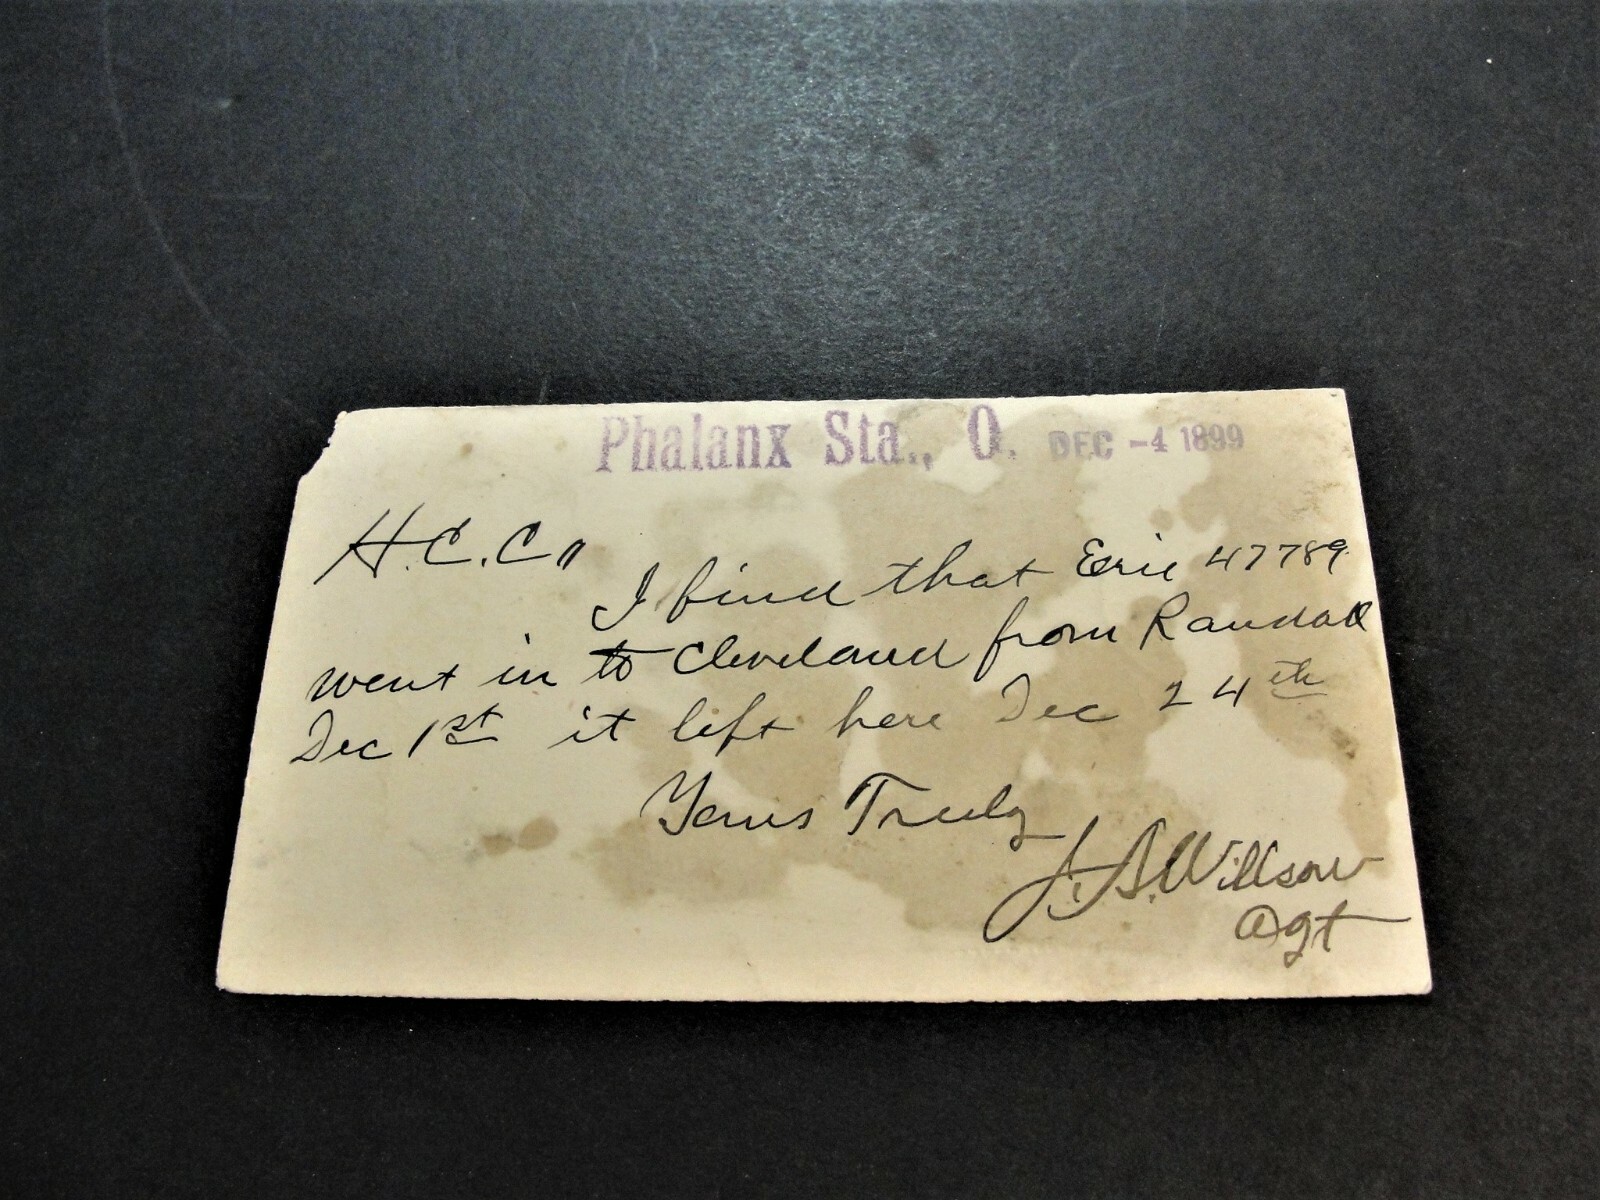 Phalanx Sta., O. DEC -4 1899
H.C.C"
I find that Erie 47789
went in to Cleveland from Randall
Dec 1st it left here Dec 24th
Yours Truly
J.A. Willson
Agt